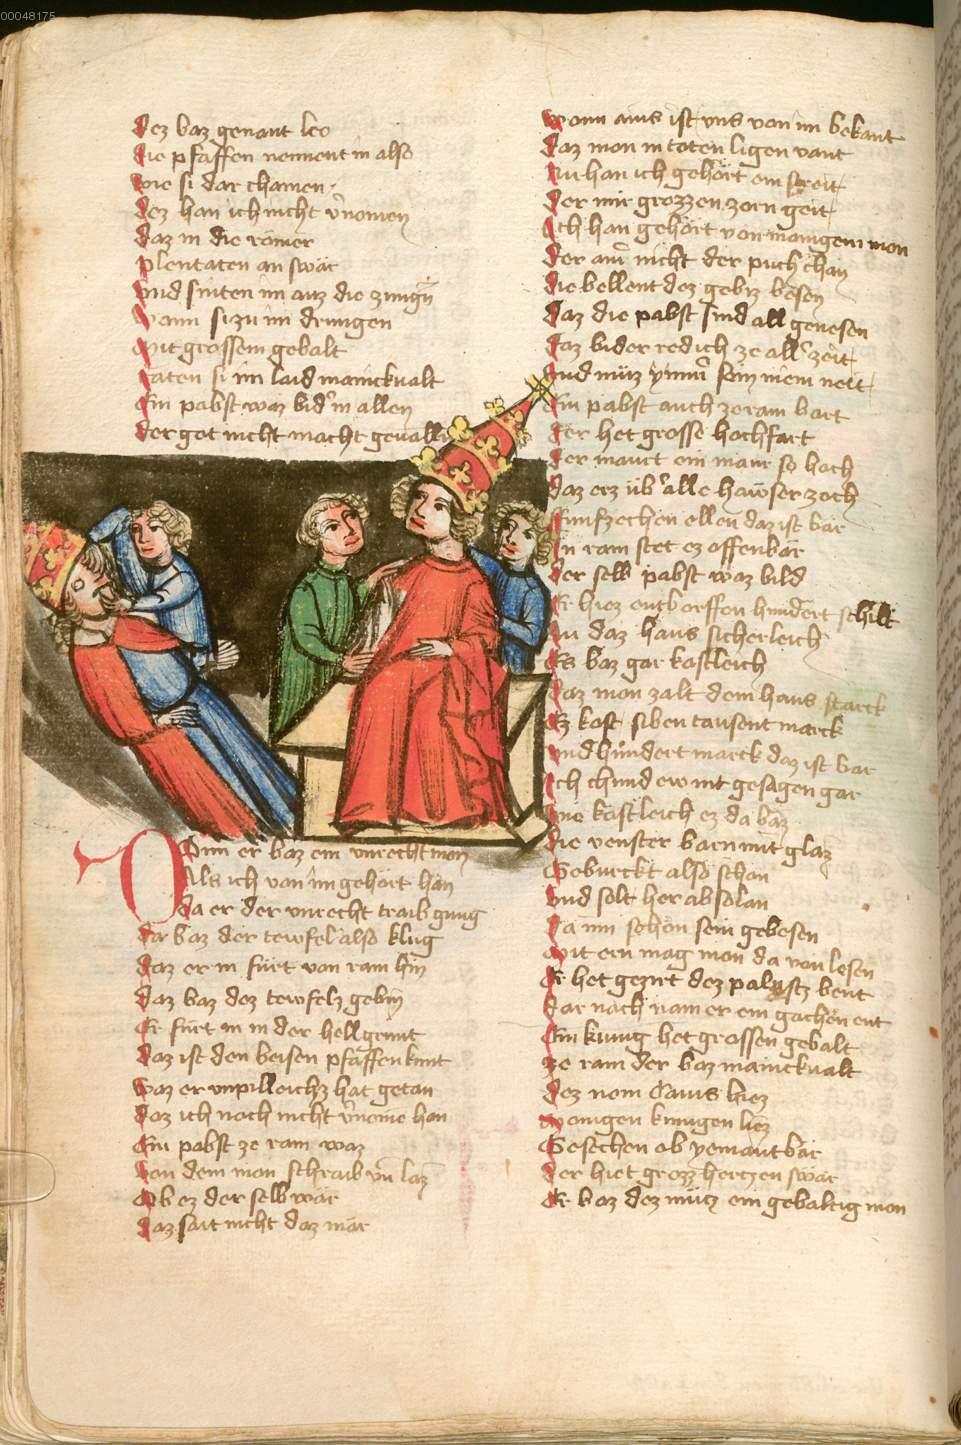 00048175
dez baz genant leo
die pfaffen nennent in also
wie si dar chamen
dez han ich nicht v̾nomen
daz in die römer
plentaten an swär
vnd sniten im auz die zunḡ
wann si zu im drungen
mit grossem gebalt
taten si im laid manickualt
Ein pabst waz bid̾ in allen
der got nicht macht geualln
Dann er baz ein vnrecht man
Als ich von im gehört han
da er der vnrecht traib gnug
do baz der tewfel also klug
daz er in fürt von ram hin
daz baz dez tewfelz gebin
Er fürt in in der hell grunt
daz ist den beisen pfaffen kunt
waz er vnpilleichz hat getan
daz ich noch nicht v̾nome han
Ein pabst ze ram waz
von dem man schraib vn̄ laz
Ob ez der selb war
daz sait nicht daz mär
wann ains ist vns von im bekant
daz man in toten ligen vant
Nu han ich gehört ein streit
der mir grozzen zorn geit
Ich han gehört von manigem man
der nicht der puch chan
die bellent dez gebiz besen
daz die pabst sind all genesen
daz bider red ich ze all̾ zeit
vnd müz ymm̾ sein mein neit
Ein pabst auch ze ram bart
der het grosse hochfart
der maurt ein maur so hoch
daz erz üb̾ alle hawser zoch
fimfzechen ellen daz ist bar
In ram stet ez offenbär
der selb pabst waz bild
Er hiez entborffen hundert schilt
In daz haus sicherleich
Es baz gar kostleich
daz man zalt dem haus starck
Ez kost siben tausent marck
vnd hundert marck daz ist bar
Ich chund ew nit gesagen gar
wie kostleich ez da baz
die venster barn mit glaz
Geburckt also schon
vnd solt her absolan
da inn schon sein gebesen
mit ern mag man da von lesen
Er het geziert dez palastz bent
dar nach nam er ein gachen ent
Ein kunig het grossen gebalt
ze ram der baz manickualt
dez nom Gaius hiez
manigen kunigen liez
Gesechen ob yemant bär
der hiet grozz hertzen swär
Er baz dez mütz ein gebaltig man